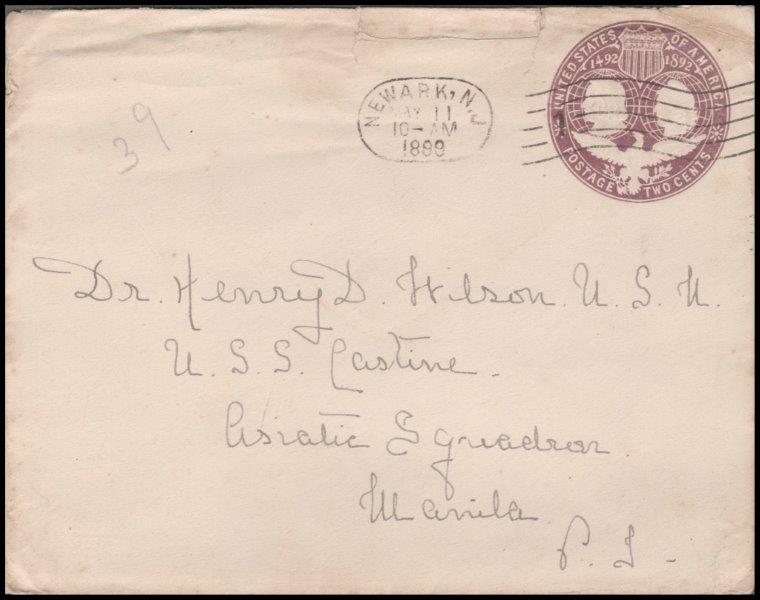 39
NEWARK, N.J
MAY 11
10-AM
1899
UNITED STATES OF AMERICA
1492 1892
POSTAGE TWO CENTS
Dr. Henry D. Wilson. U. S. N.
U. S. S. Castine.
Asiatic Squadron
Manila
P. I.